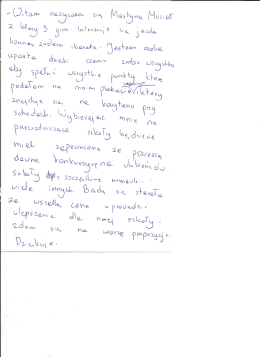 - Witam nazywam się Martyna Musiał
z klasy 3 gim. Interesuje się jazda
konną, Jestem osobą
upartą dzięki czemu zrobię wszystko
aby spełnić wszystkie punkty które
podałam na moim plakacie który
znajduje się na korytarzu przy
schodach. Wybierając mnie na
przewodniczącą szkoły będziecie
mieli zapewnione że powrócą
dawne konkursy np na ulubieńców
szkoły, szczęśliwe numerki i
wiele innych. Będę się starała
za wszelką cenę wprowadzić
ulepszenia dla naszej szkoły.
zdam się na wasze propozycje.
Dziękuje.